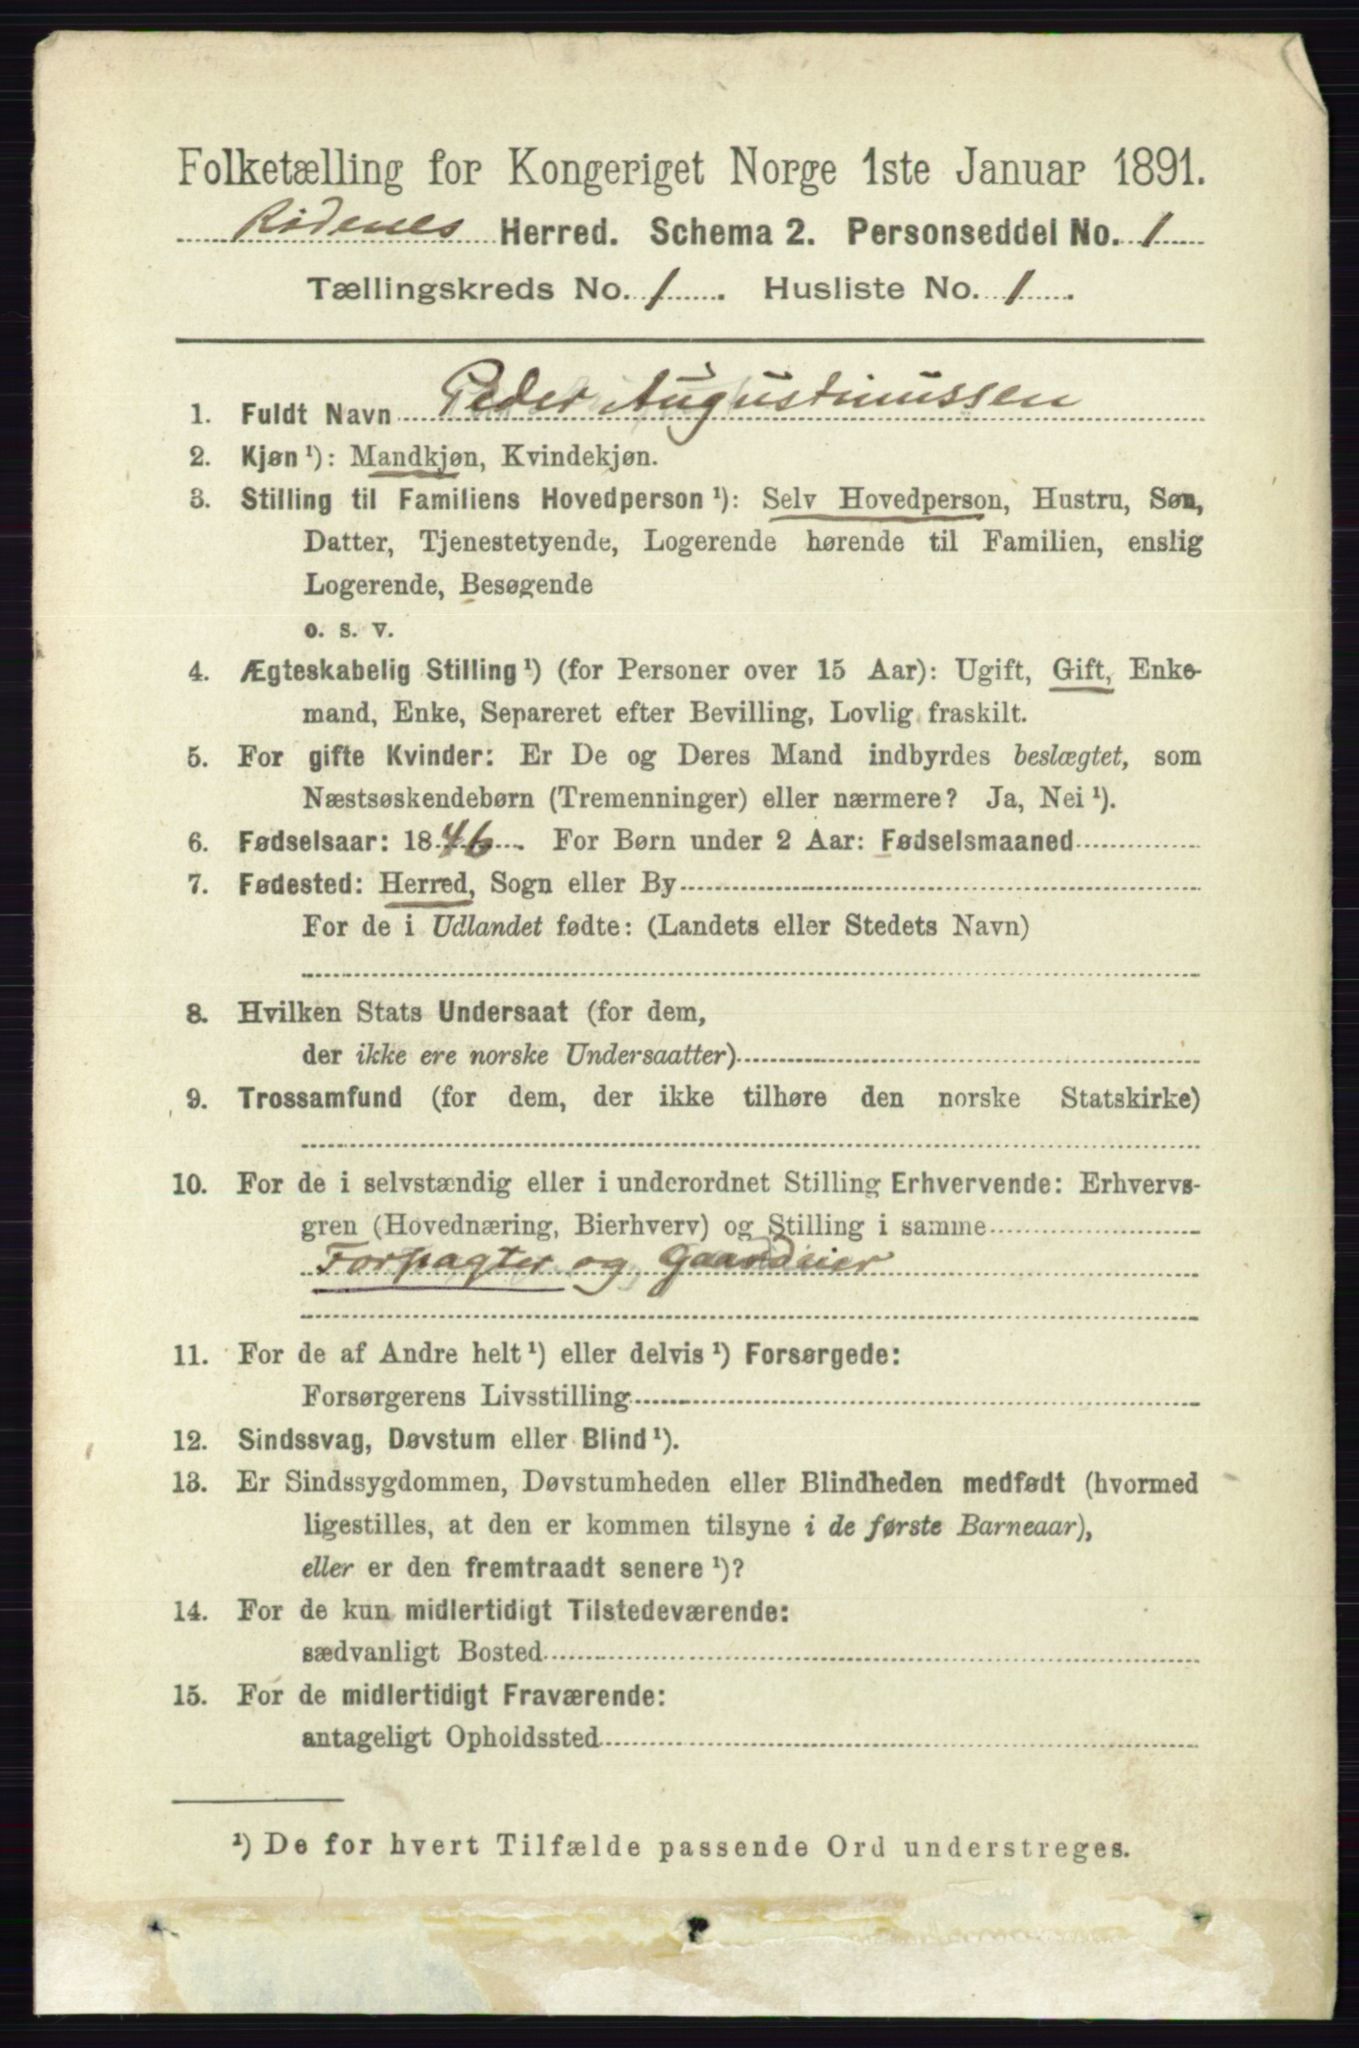 Folketælling for Kongeriget Norge 1ste Januar 1891.
Rødenes Herred. Schema 2. Personseddel No. 1
Tællingskreds No. 1. Husliste No. 1.
1. Fuldt Navn Peder Augustinussen
2. Kjøn ¹): Mandkjøn, Kvindekjøn.
3. Stilling til Familiens Hovedperson ¹): Selv Hovedperson, Hustru, Søn,
Datter, Tjenestetyende, Logerende hørende til Familien, enslig
Logerende, Besøgende
o. s. v.
4. Ægteskabelig Stilling ¹) (for Personer over 15 Aar): Ugift, Gift, Enke-
mand, Enke, Separeret efter Bevilling, Lovlig fraskilt.
5. For gifte Kvinder: Er De og Deres Mand indbyrdes beslægtet, som
Næstsøskendebørn (Tremenninger) eller nærmere? Ja, Nei ¹).
6. Fødselsaar: 1846. For Børn under 2 Aar: Fødselsmaaned
7. Fødested: Herred, Sogn eller By
For de i Udlandet fødte: (Landets eller Stedets Navn)
8. Hvilken Stats Undersaat (for dem,
der ikke ere norske Undersaatter)
9. Trossamfund (for dem, der ikke tilhøre den norske Statskirke)
10. For de i selvstændig eller i underordnet Stilling Erhvervende: Erhvervs-
gren (Hovednæring, Bierhverv) og Stilling i samme
Forpagter og Gaardeier
11. For de af Andre helt ¹) eller delvis ¹) Forsørgede:
Forsørgerens Livsstilling
12. Sindssvag, Døvstum eller Blind ¹).
13. Er Sindssygdommen, Døvstumheden eller Blindheden medfødt (hvormed
ligestilles, at den er kommen tilsyne i de første Barneaar),
eller er den fremtraadt senere ¹)?
14. For de kun midlertidigt Tilstedeværende:
sædvanligt Bosted
15. For de midlertidigt Fraværende:
antageligt Opholdssted
¹) De for hvert Tilfælde passende Ord understreges.